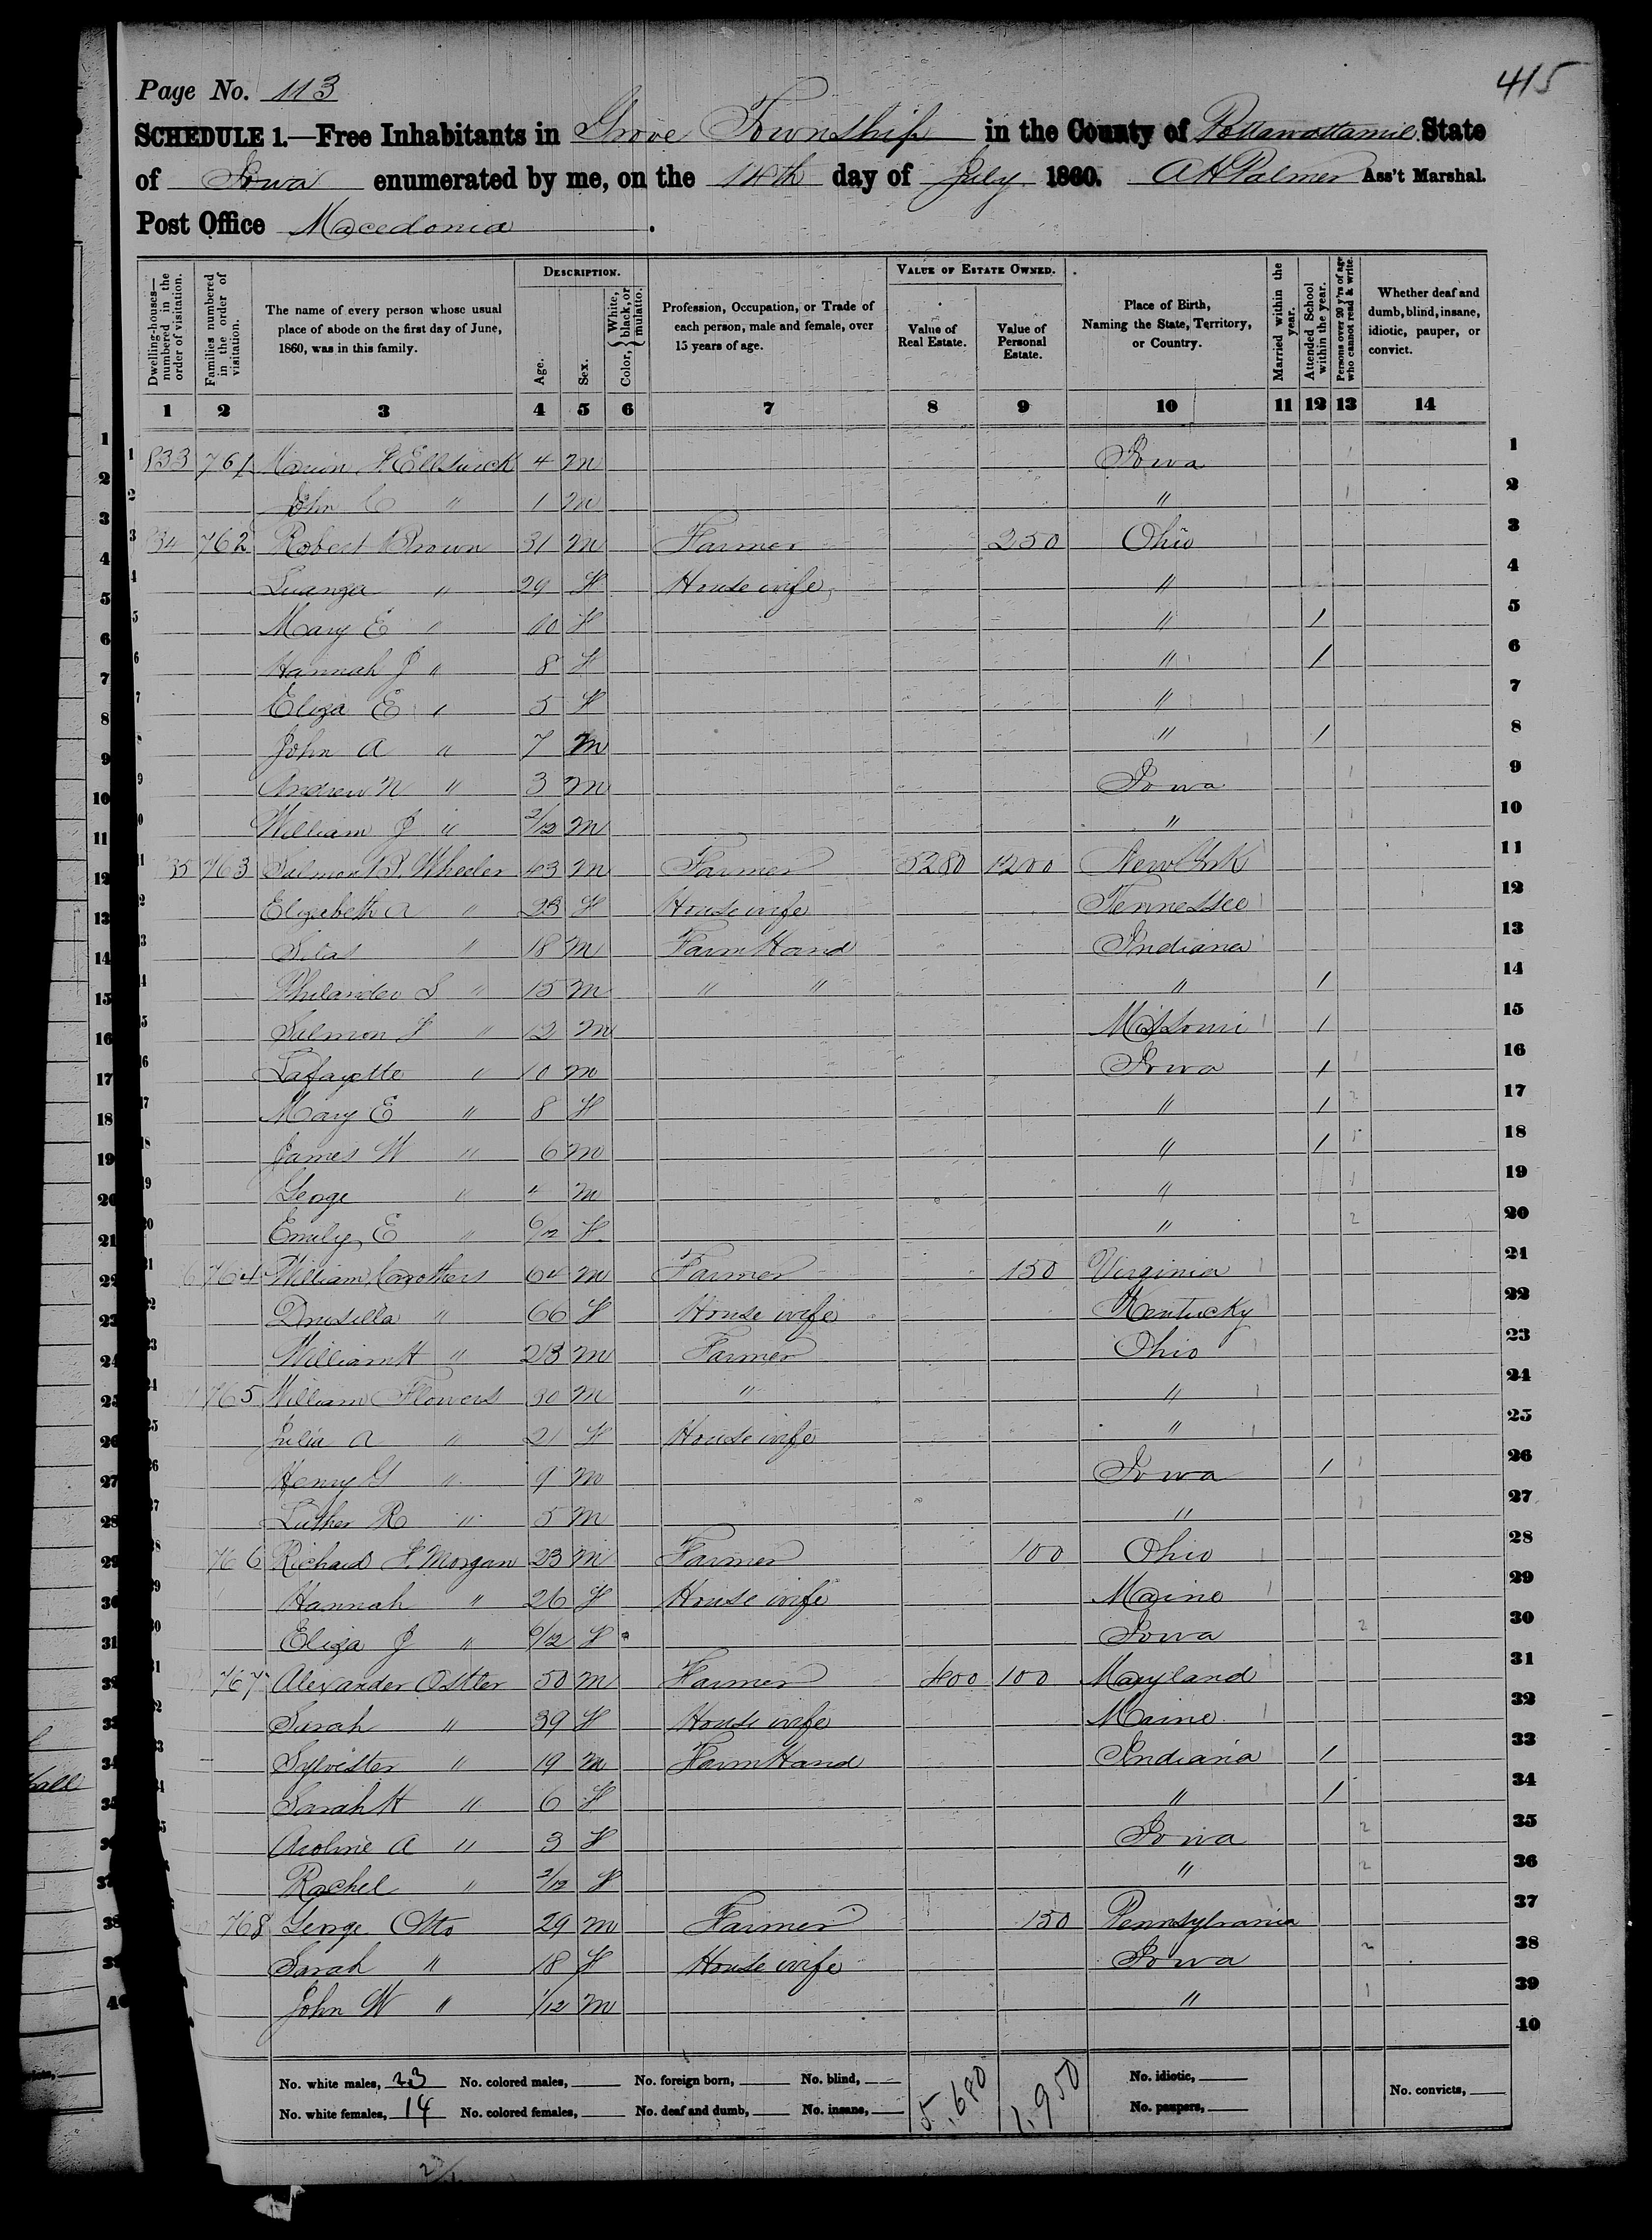 415
Page No. 113
SCHEDULE 1.—Free Inhabitants in Grove Township in the County of Pottawattamie State
of Iowa enumerated by me, on the 14th day of July 1860. A H Palmer Ass't Marshal.
Post Office Macedonia.
Dwelling-houses—numbered in the order of visitation. Families numbered in the order of visitation. The name of every person whose usual place of abode on the first day of June, 1860, was in this family. DESCRIPTION. Age. Sex. Color, {White, black, or mulatto. Profession, Occupation, or Trade of each person, male and female, over 15 years of age. VALUE OF ESTATE OWNED. Value of Real Estate. Value of Personal Estate. Place of Birth, Naming the State, Territory, or Country. Married within the year. Attended School within the year. Persons over 20 y'rs of age who cannot read & write. Whether deaf and dumb, blind, insane, idiotic, pauper, or convict.
1 2 3 4 5 6 7 8 9 10 11 12 13 14
1 833 761 4 m Iowa 1 1
2 John C " 1 m " 1 2
3 34 762 Robert Brown 31 m Farmer 250 Ohio 3
4 29 f House wife " 4
5 Mary E " 10 f " / 5
6 Hannah J " 8 f " / 6
7 Eliza E " 5 f " 7
8 John A " 7 m " / 8
9 Andrew N " 3 m Iowa 1 9
10 William J " 2/12 m " 1 10
11 35 763 Salmon B. Wheeler 43 m Farmer 5280 1200 New York 11
12 Elizabeth A " 23 f House wife Tennessee 12
13 Silas " 18 m Farm Hand Indiana 13
14 Philander S " 15 m " " " / 14
15 Salmon F " 12 m Missouri / 15
16 Lafayette " 10 m Iowa / 1 16
17 Mary E " 8 f " / 2 17
18 James W " 6 m " / 18
19 George " 4 m " 1 19
20 Emily E " 6/12 f " 2 20
21 764 William Carothers 64 m Farmer 150 Virginia 21
22 Drusilla " 66 f House wife Kentucky 22
23 William H " 23 m Farmer Ohio 23
24 765 William Flowers 30 m " " 24
25 Julia A " 21 f House wife " 25
26 Henry G " 9 m Iowa / 1 26
27 Luther R " 5 m " 1 27
28 766 Richard F. Morgan 23 m Farmer 100 Ohio 28
29 Hannah " 26 f House wife Maine 29
30 Eliza J " 6/12 f Iowa 2 30
31 767 Alexander Ostler 50 m Farmer 400 100 Maryland 31
32 Sarah " 39 f House wife Maine 32
33 Sylvester " 19 m Farm Hand Indiana / 33
34 Sarah H " 6 f " / 34
35 A " 3 f Iowa 2 35
36 Rachel " 2/12 f " 2 36
37 768 George Otto 29 m Farmer 150 Pennsylvania 37
38 Sarah " 18 f House wife Iowa 2 38
39 John W " 1/12 m " 1 39
40
No. white males, 23 No. colored males, No. foreign born, No. blind, 5,680 1,950 No. idiotic, No. convicts,
No. white females, 14 No. colored females, No. deaf and dumb, No. insane, No. paupers,